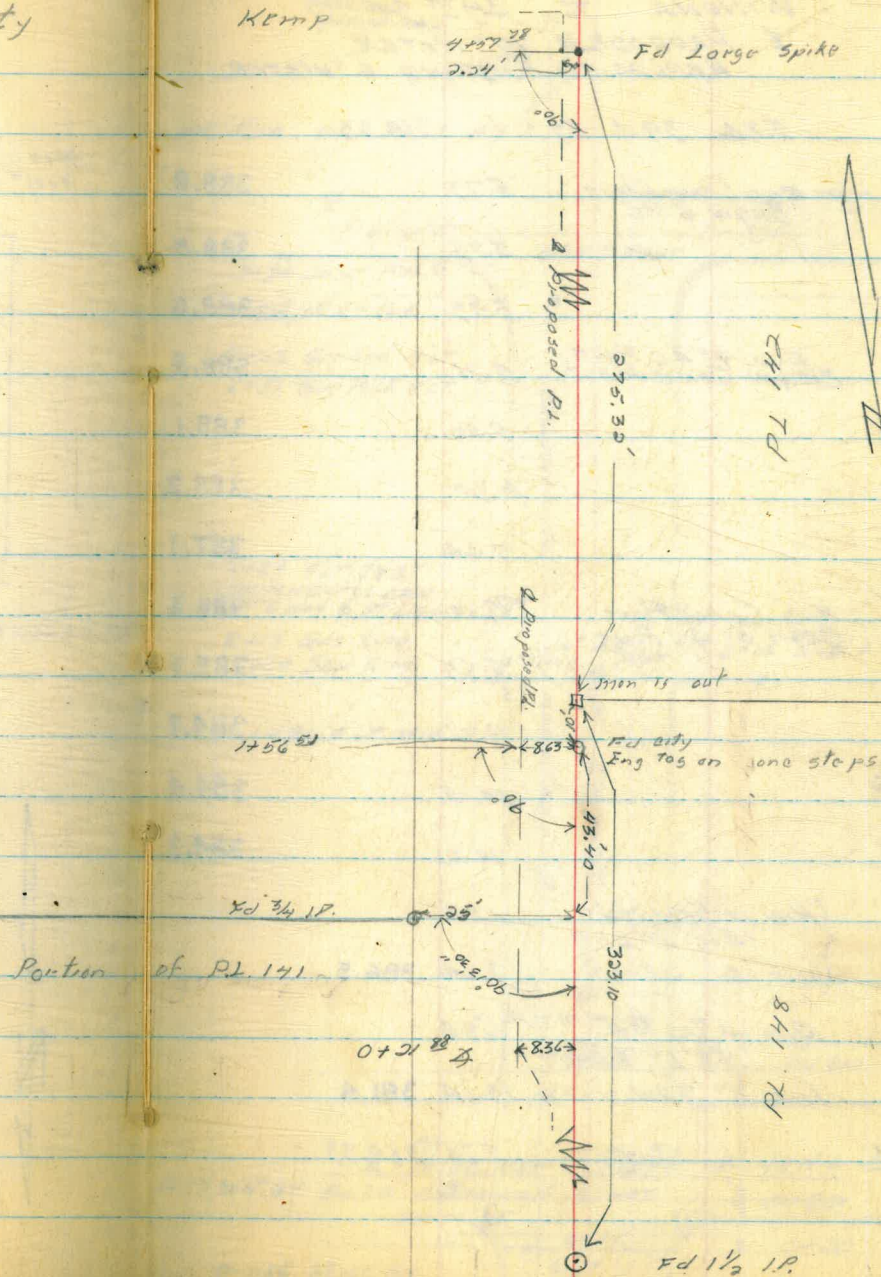 ty
Kemp
4+57 82
2.24'
Fd Large Spike
90°
₽ Proposed P.L.
275.32'
PL 142
₽ Proposed P.L.
mon is out
10'
1+56 51
8.63
Fd City
Eng Tag on conc steps
90°
43.40
Fd 3/4 I.P.
25'
Portion of P.L. 141
90° 13' 30"
323.10
8.36
PL 148
Fd 1 1/2 I.P.